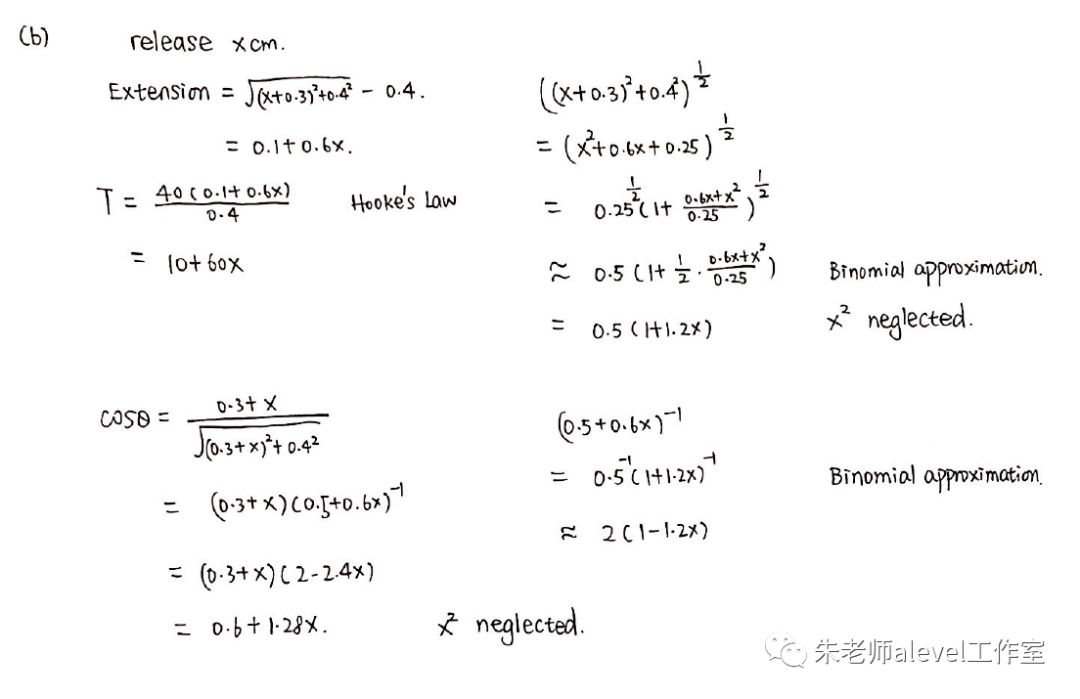 (b) release xcm.
Extension = √((x+0.3)²+0.4²) - 0.4.
= 0.1+0.6x.
T = 40(0.1+0.6x)/0.4 Hooke's Law
= 10+60x
((x+0.3)²+0.4²)^(1/2)
= (x²+0.6x+0.25)^(1/2)
= 0.25^(1/2)(1+ (0.6x+x²)/0.25)^(1/2)
≈ 0.5(1+ 1/2 · (0.6x+x²)/0.25) Binomial approximation.
= 0.5(1+1.2x) x² neglected.
cosθ = (0.3+x)/√((0.3+x)²+0.4²)
= (0.3+x)(0.5+0.6x)⁻¹
= (0.3+x)(2-2.4x)
= 0.6+1.28x. x² neglected.
(0.5+0.6x)⁻¹
= 0.5⁻¹(1+1.2x)⁻¹ Binomial approximation.
≈ 2(1-1.2x)
朱老师alevel工作室